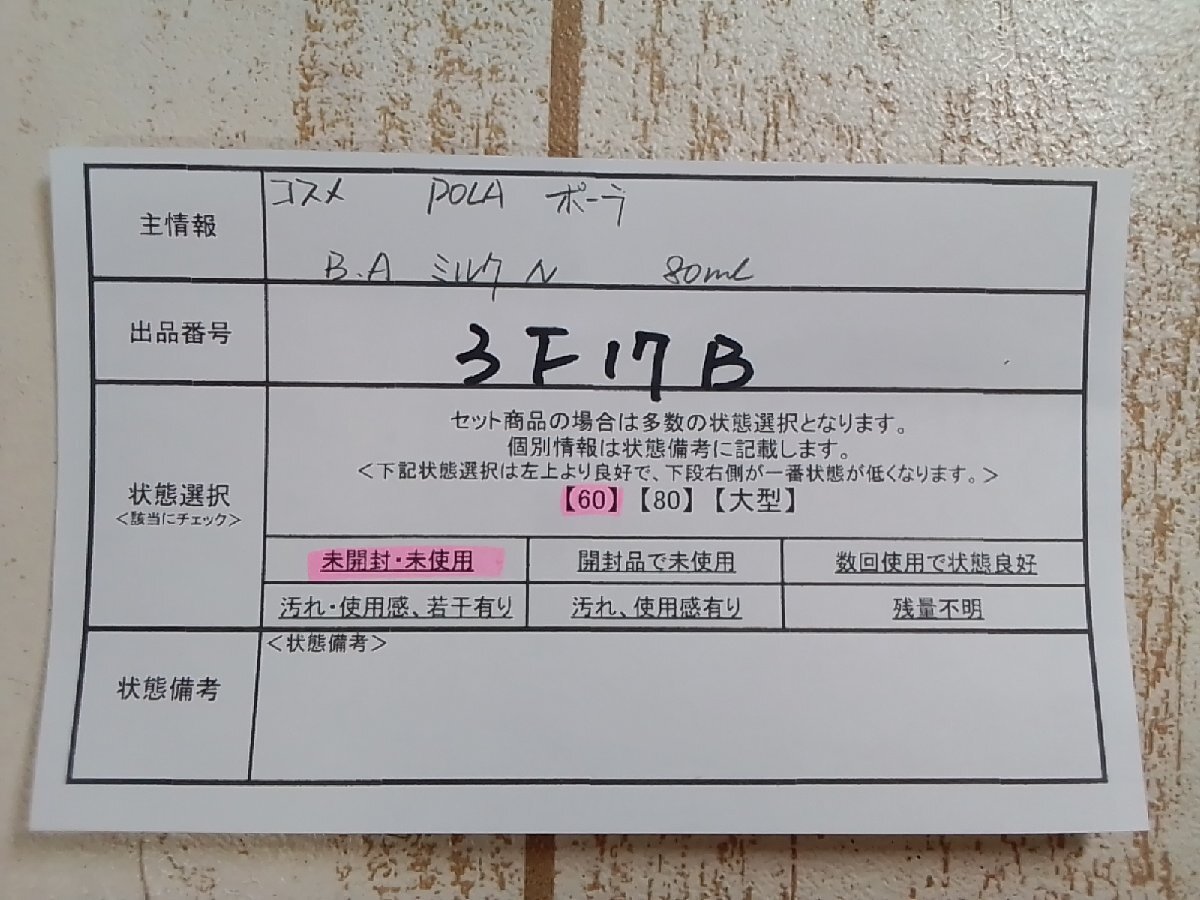 主情報
コスメ POLA ポーラ
B.A ミルク N 80ml
出品番号
3F17B
状態選択
<該当にチェック>
セット商品の場合は多数の状態選択となります。
個別情報は状態備考に記載します。
<下記状態選択は左上より良好で、下段右側が一番状態が低くなります。>
【60】【80】【大型】
未開封・未使用 開封品で未使用 数回使用で状態良好
汚れ・使用感、若干有り 汚れ、使用感有り 残量不明
状態備考
<状態備考>